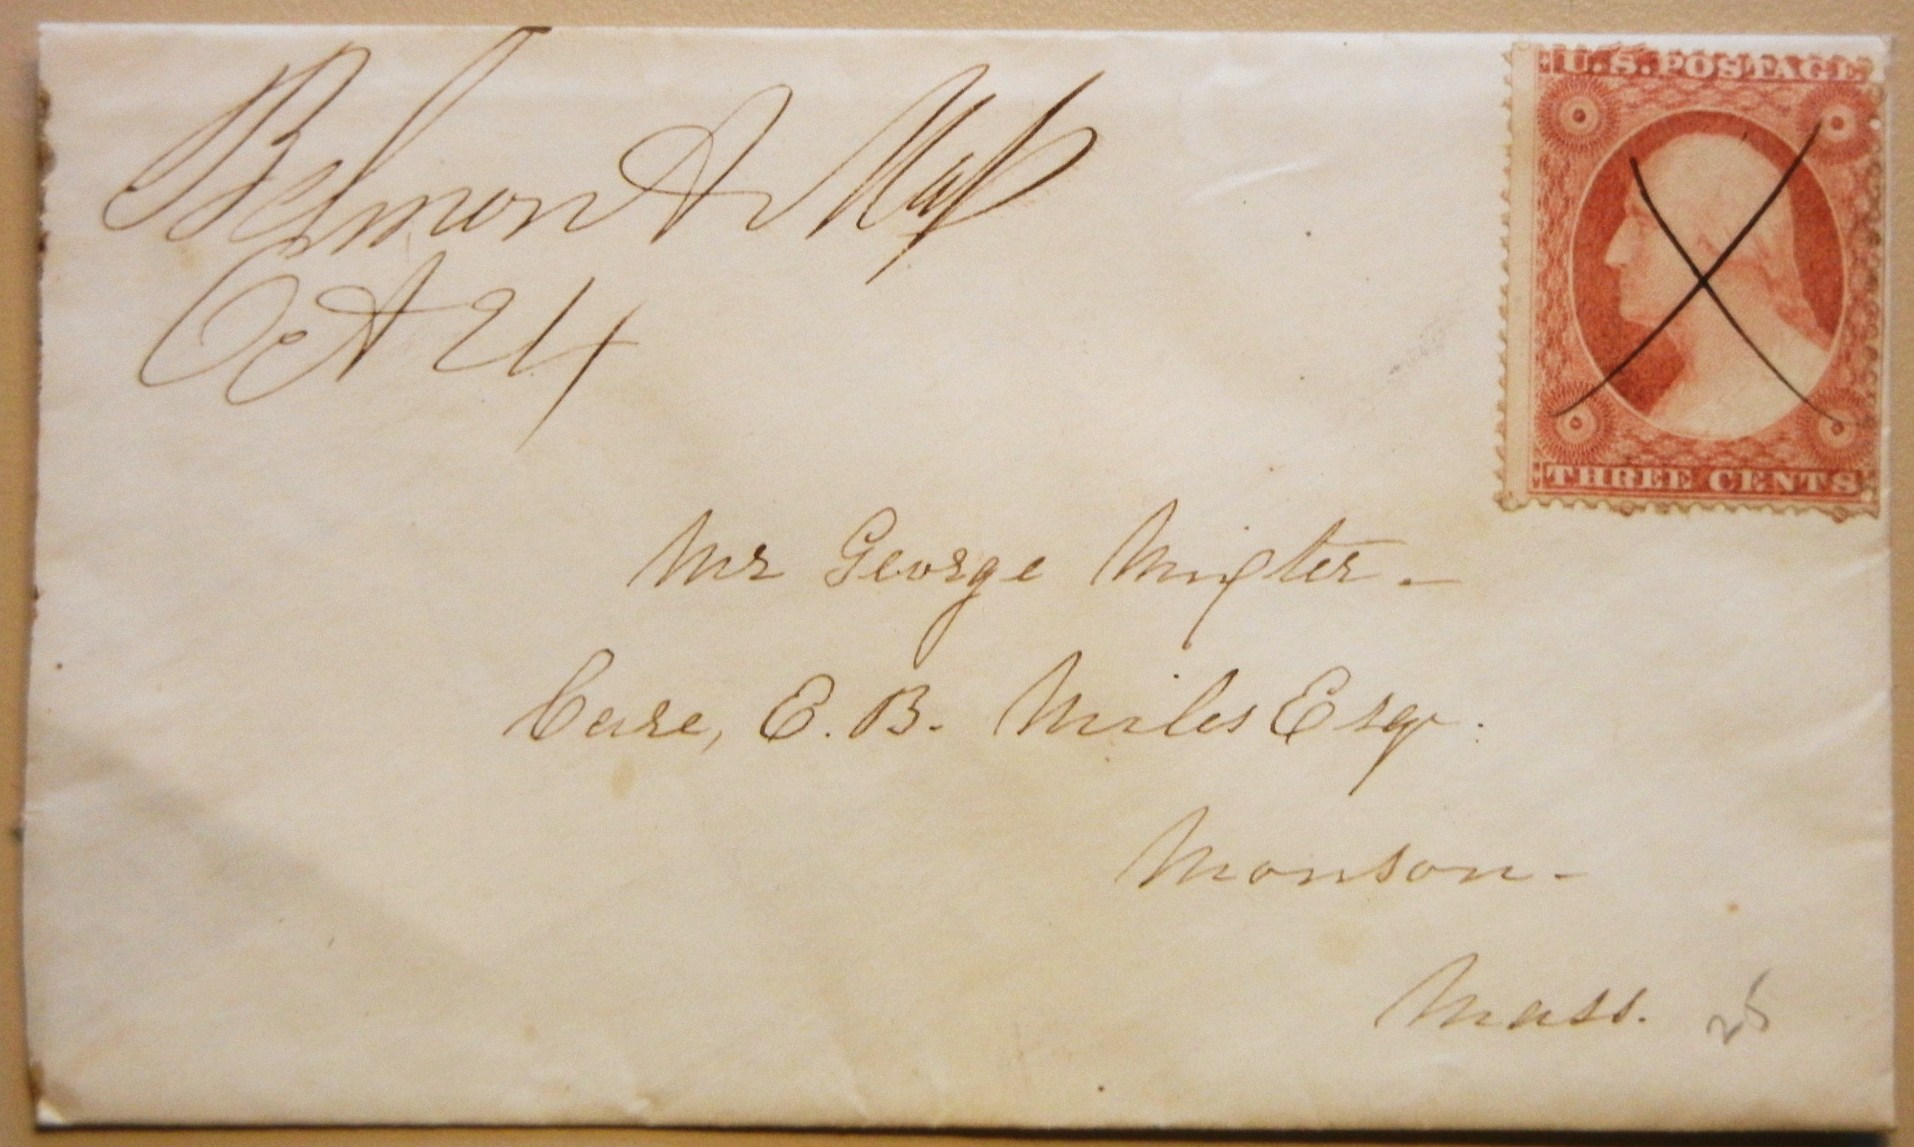 Belmont Mass
Oct 24
U.S. POSTAGE
THREE CENTS
Mr George Mixter -
Care, E. B. Miles Esqr.
Monson -
Mass.